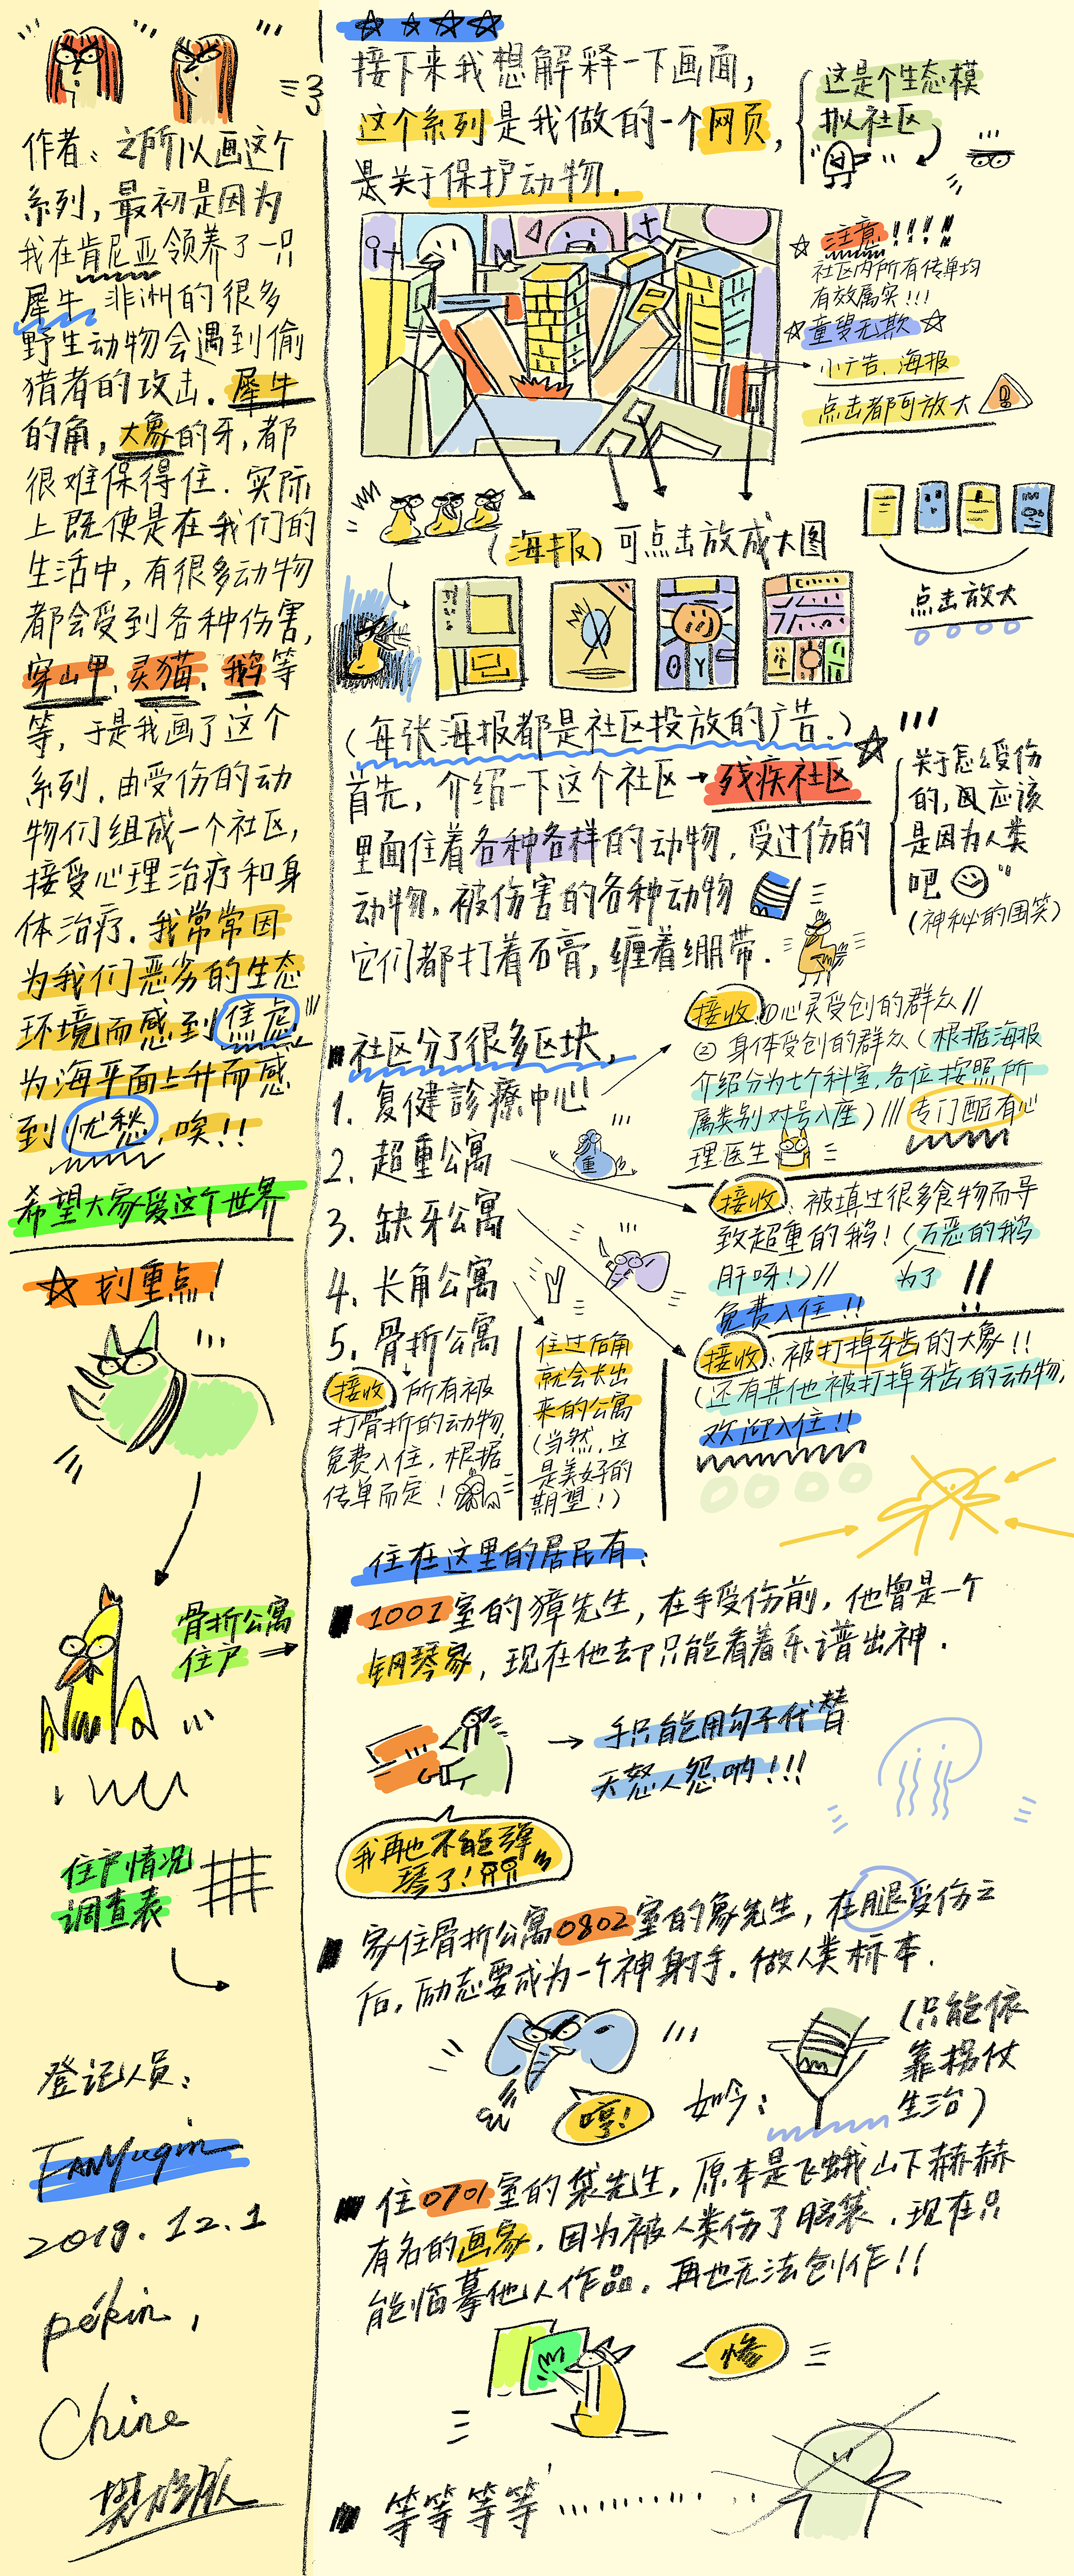 作者：之所以画这个
系列，最初是因为
我在肯尼亚领养了一只
犀牛，非洲的很多
野生动物会遇到偷
猎者的攻击．犀牛
的角，大象的牙，都
很难保得住．实际
上既使是在我们的
生活中，有很多动物
都会受到各种伤害，
穿山甲、灵猫、鹅等
等，于是我画了这个
系列．由受伤的动
物们组成一个社区，
接受心理治疗和身
体治疗．我常常因
为我们恶劣的生态
环境而感到焦虑
为海平面上升而感
到忧愁，唉！！
希望大家爱这个世界
☆划重点！
骨折公寓
住户
住户情况
调查表
登记人员：
FANYuqin
2019.12.1
pékin,
Chine
接下来我想解释一下画面，
这个系列是我做的一个网页，
是关于保护动物．
这是个生态模
拟社区
☆注意！！！！
社区内所有传单均
有效属实！！！
☆童叟无欺☆
小广告、海报
点击都可放大
（海报）可点击放成大图
点击放大
（每张海报都是社区投放的广告．）
首先，介绍一下这个社区→残疾社区
里面住着各种各样的动物．受过伤的
动物．被伤害的各种动物
它们都打着石膏，缠着绷带．
关于怎么受伤
的，应该
是因为人类
吧
（神秘的围笑）
社区分了很多区块，
1．复健診療中心
2．超重公寓
重
3．缺牙公寓
4．长角公寓
5．骨折公寓
接收①心灵受创的群众//
②身体受创的群众（根据海报
介绍分为七个科室，各位按照所
属类别对号入座）///专门配有心
理医生
接收：被填过很多食物而导
致超重的鹅！（万恶的鹅
肝呀！）//为了
免费入住！！
接收：被打掉牙齿的大象！！
（还有其他被打掉牙齿的动物，
欢迎入住！！
接收：所有被
打骨折的动物，
免费入住．根据
传单而定！
住过后角
就会长出
来的公寓
（当然，这
是美好的
期望！）
住在这里的居民有：
1001室的獐先生，在手受伤前，他曾是一个
钢琴家，现在他却只能看着乐谱出神．
→手只能用勾子代替
天怒人怨呐！！！
我再也不能弹
琴了！
家住骨折公寓0802室的象先生，在腿受伤之
后，励志要成为一个神射手．做人类标本．
哼！
如今：
（只能依
靠拐仗
生治）
住0701室的袋先生，原本是飞蛾山下赫赫
有名的画家．因为被人类伤了脑袋．现在只
能临摹他人作品．再也无法创作！！
惨
等等等等………